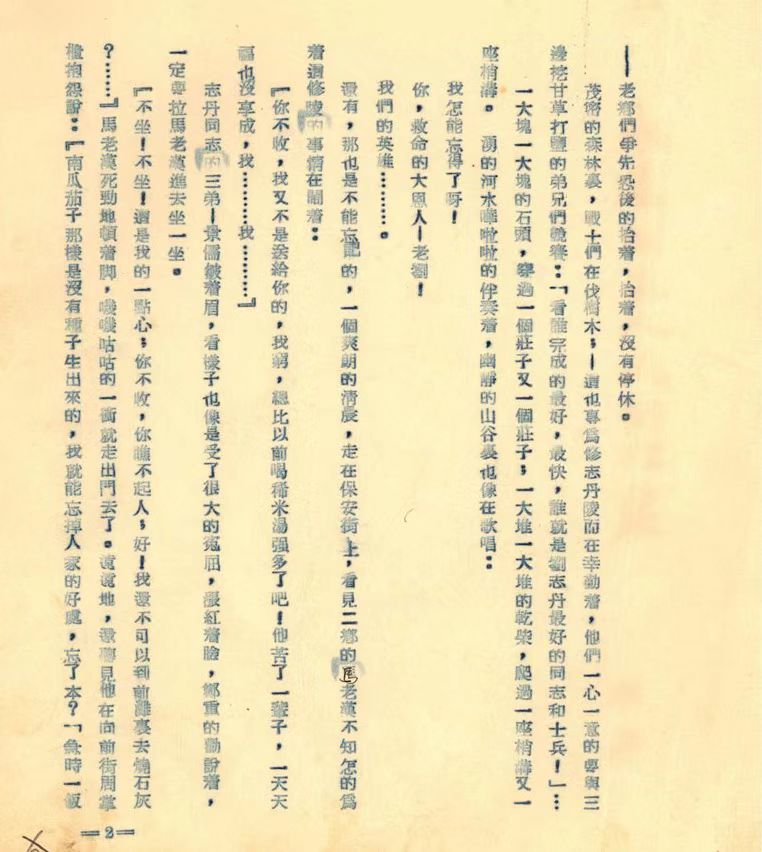 ——老鄉們爭先恐後的抬着，抬着，沒有停休。
茂密的森林裏，戰士們在伐樹木；——這也專爲修志丹陵而在辛勤着，他們一心一意的要與三
邊挖甘草打鹽的弟兄們競賽：「看誰完成的最好，最快，誰就是劉志丹最好的同志和士兵！」…
一大塊一大塊的石頭，穿過一個莊子又一個莊子；一大堆一大堆的乾柴，爬過一座梢溝又一
座梢溝。 湧的河水嘩啦啦的伴奏着，幽靜的山谷裏也像在歌唱：
我怎能忘得了呀！
你，救命的大恩人—老劉！
我們的英雄………。
還有，那也是不能忘記的，一個爽朗的清晨，走在保安街上，看見二鄉的馬老漢不知怎的爲
着這修陵的事情在鬧着：
『你不收，我又不是送給你的，我窮，總比以前喝稀米湯强多了吧！他苦了一輩子，一天天
福也沒享成，我………我………』
志丹同志的三弟—景儒皺着眉，看樣子也像是受了很大的寃屈，漲紅着臉，鄭重的勸說着，
一定要拉馬老漢進去坐一坐。
『不坐！不坐！這是我的一點心；你不收，你瞧不起人；好！我還不可以到前灘裏去燒石灰
？……』馬老漢死勁地頓着脚，嘰嘰咕咕的一衝就走出門去了。遠遠地，還聽見他在向前街周掌
櫃抱怨說：『南瓜茄子那樣是沒有種子生出來的，我就能忘掉人家的好處，忘了本？「急時一飯
＝2＝